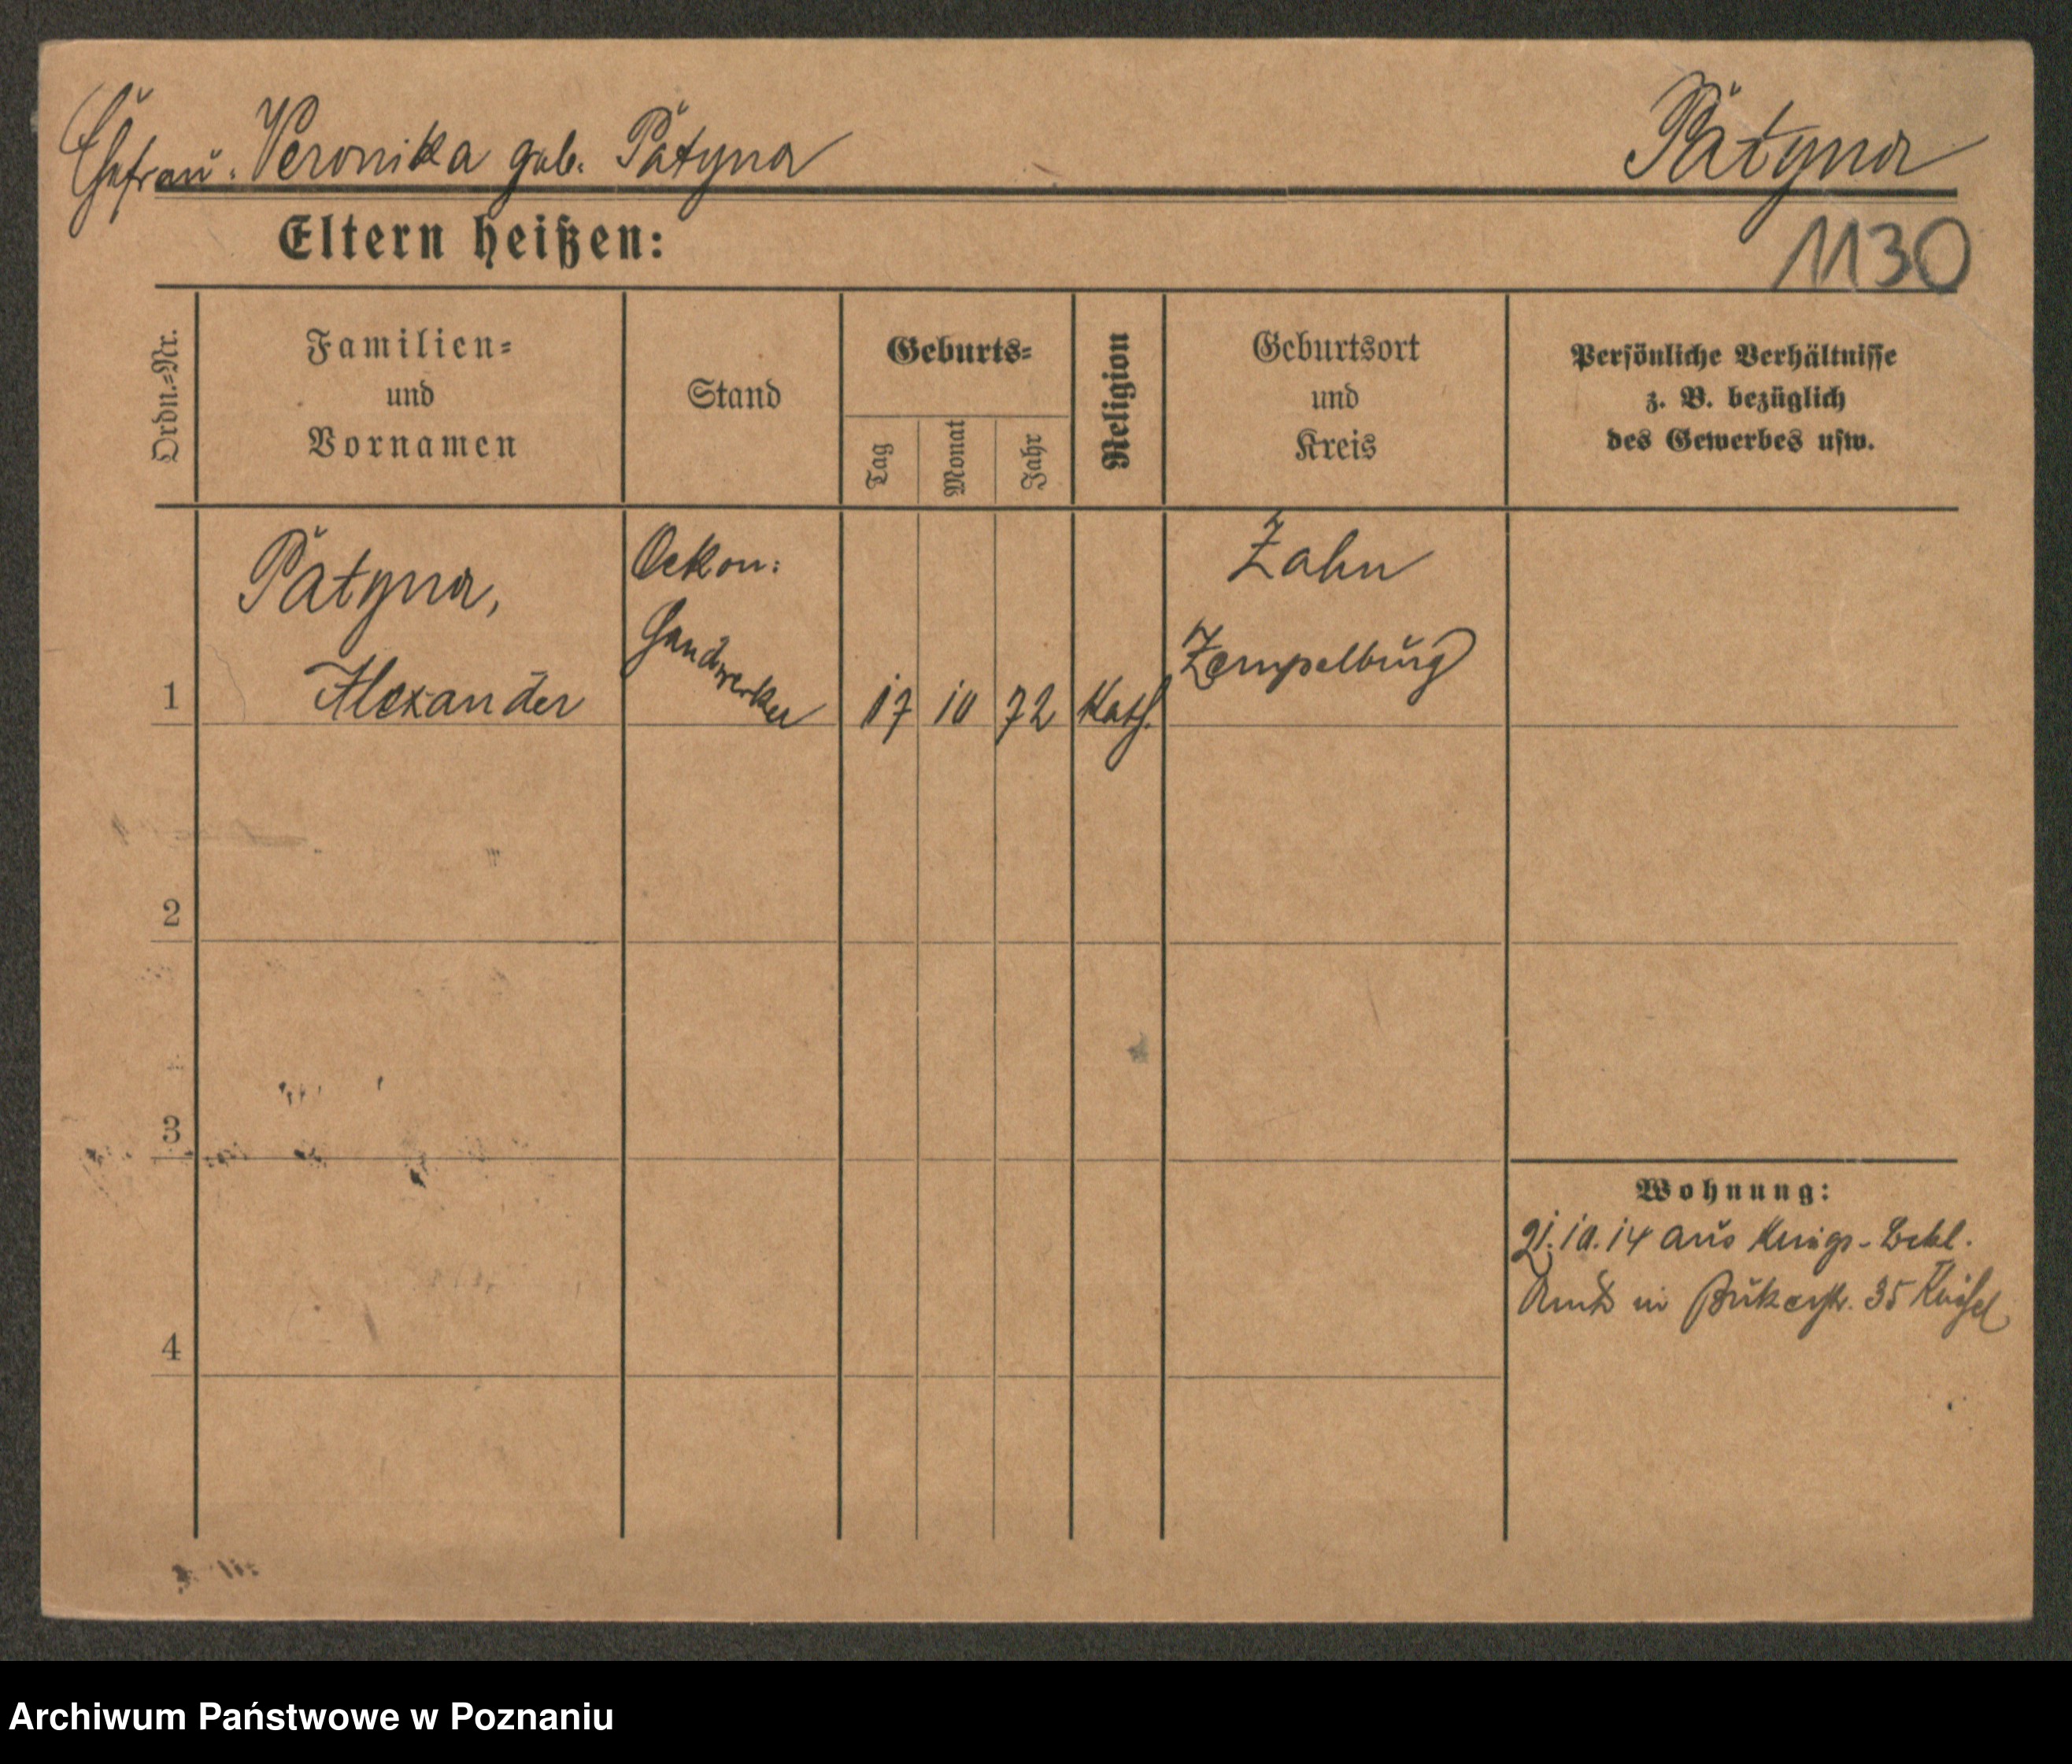 Ehefrau: Veronika geb. Pätyna
Pätyna
Eltern heißen:
1130
Ordn.=Nr.
Familien=
und
Vornamen
Stand
Geburts=
Tag
Monat
Jahr
Religion
Geburtsort
und
Kreis
Persönliche Verhältnisse
z. B. bezüglich
des Gewerbes usw.
1
Pätyna,
Alexander
Oekon:
Handwerker
17
10
72
Kath.
Zahn
Zempelburg
2
3
4
Wohnung:
21.10.14 aus Kriegs-Bekl.
Amt in Bukerstr. 35
Archiwum Państwowe w Poznaniu